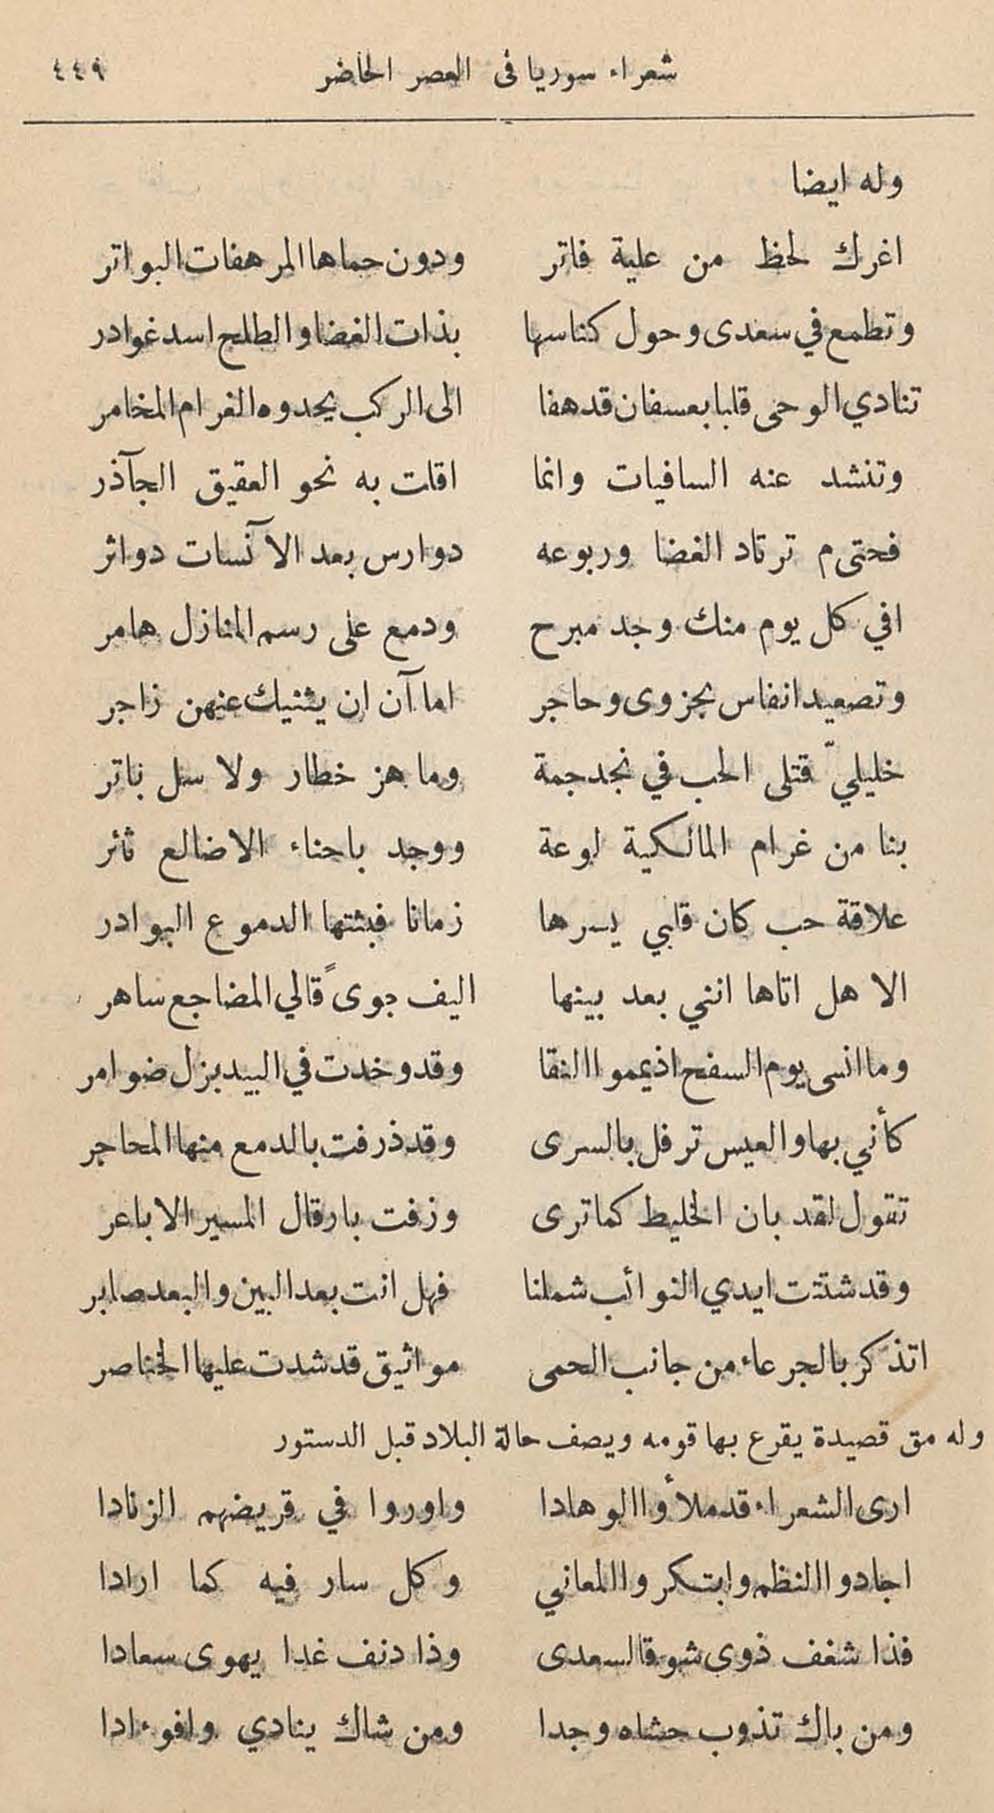 شعراء سوريا فى العصر الحاضر ٤٤٩
وله ايضا
اغرك لحظ من علية فاتر ودون حماها المرهفات البواتر
وتطمع في سعدى وحول كناسها بذات الغضا والطلح اسد غوادر
تنادي الوحى قلبا بعسفان قد هفا الى الركب يحدوه الغرام المخامر
وتنشد عنه السافيات وانما اقلت به نحو العقيق الجآذر
فحتى م ترتاد الغضا وربوعه دوارس بعد الآنسات دواثر
افي كل يوم منك وجد مبرح ودمع على رسم المنازل هامر
وتصعيد انفاس بجزوى وحاجر اما آن ان يثنيك عنهن زاجر
خليليّ قتلى الحب في نجد جمة وما هز خطار ولا سل باتر
بنا من غرام المالكية لوعة ووجد باحناء الاضالع ثائر
علاقة حب كان قلبي يسرها زمانا فبثتها الدموع البوادر
الا هل اتاها انني بعد بينها اليف جوىً قالي المضاجع ساهر
وما انسى يوم السفح اذ يمموا النقا وقد وخدت في البيد بزل ضوامر
كأني بها والعيس ترفل بالسرى وقد ذرفت بالدمع منها المحاجر
تقول لقد بان الخليط كما ترى وزفت بارقال المسير الاباعر
وقد شتتت ايدي النوائب شملنا فهل انت بعد البين والبعد صابر
اتذكر بالجرعاء من جانب الحمى مواثيق قد شدت عليها الخناصر
وله مق قصيدة يقرع بها قومه ويصف حالة البلاد قبل الدستور
ارى الشعراء قد ملأوا الوهادا واوروا في قريضهم الزنادا
اجادوا النظم وابتكروا المعاني وكل سار فيه كما ارادا
فذا شغف ذوى شوقا لسعدى وذا دنف غدا يهوى سعادا
ومن باك تذوب حشاه وجدا ومن شاك ينادي وافوءادا